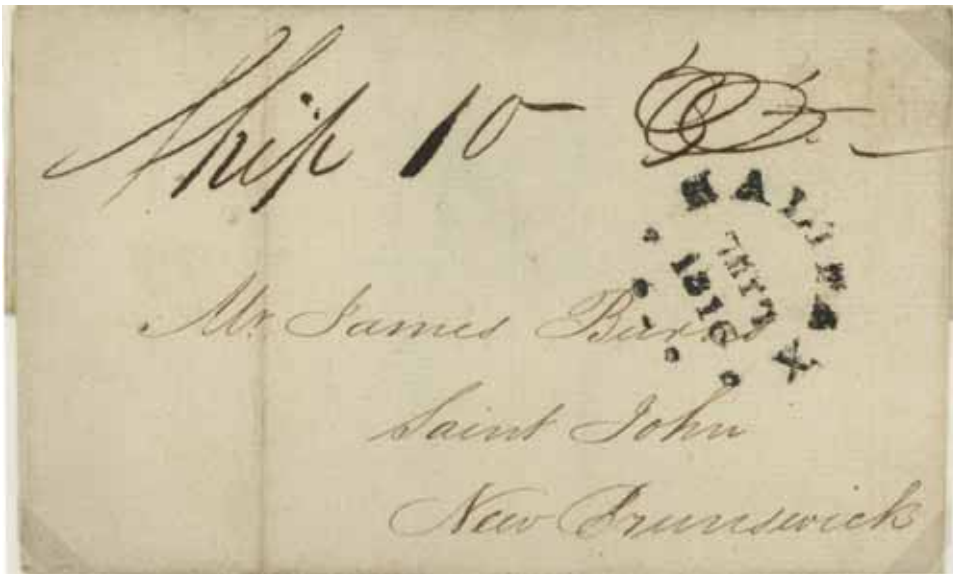 Ship 10
HALIFAX
1816
Mr. James
Saint John
New Brunswick